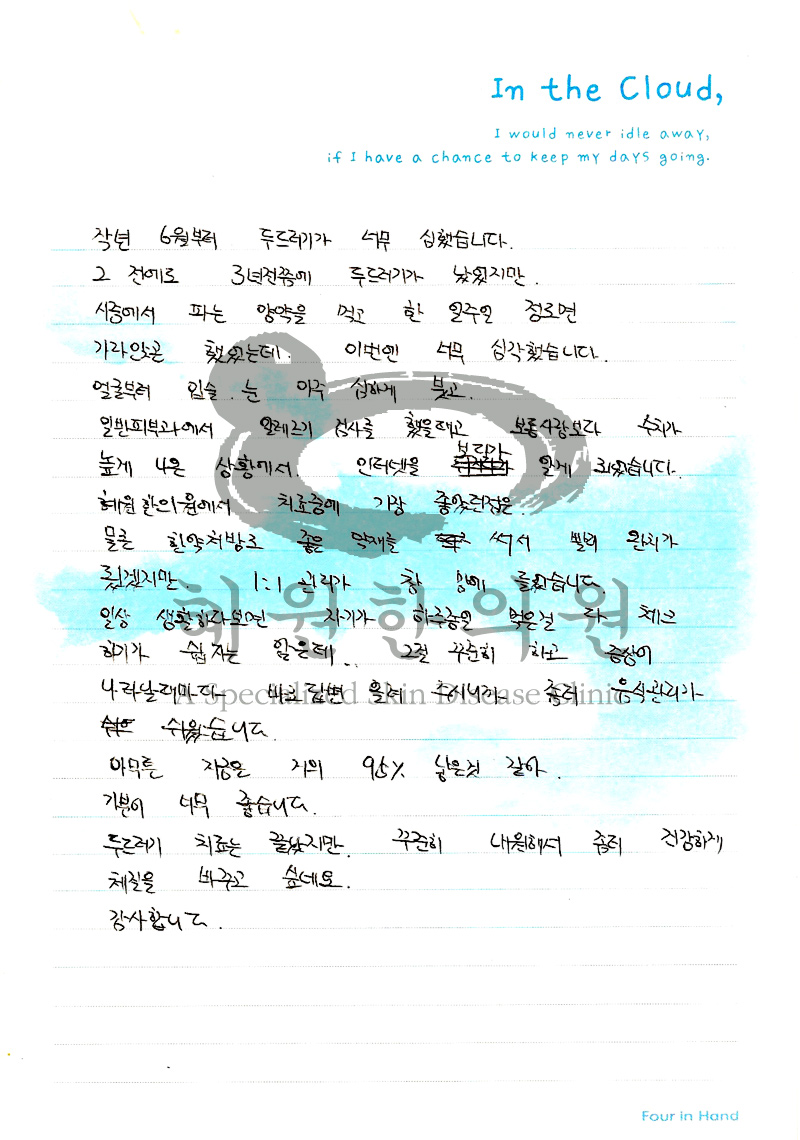 In the Cloud,
I would never idle away,
if I have a chance to keep my days going.
작년 6월부터 두드러기가 너무 심했습니다.
그 전에도 3년전쯤에 두드러기가 났었지만.
시중에서 파는 양약을 먹고 한 일주일 정도면
가라앉곤 했었는데. 이번엔 너무 심각했습니다.
얼굴부터 입술. 눈 아주 심하게 붓고.
일반피부과에서 알레르기 검사를 했을때고 보통사람보다 수치가
높게 나온 상황에서. 인터넷을 보다가 알게 되었습니다.
혜원한의원에서 치료중에 가장 좋았던점은.
물론 한약처방도 좋은 약재를 써서 빨리 완치가
됐겠지만. 1:1 관리가 참 맘에 들었습니다.
일상 생활하다보면 자기가 하루종일 먹은걸 다 체크
하기가 쉽지는 않은데.. 그걸 꾸준히 하고 증상이
나타날때마다 바로 답변 올려 주시니까 좀더 음식관리가
쉬웠습니다.
아무튼 지금은 거의 95% 낳은것 같아.
기분이 너무 좋습니다.
두드러기 치료는 끝났지만. 꾸준히 내원해서 좀더 건강하게
체질을 바꾸고 싶네요.
감사합니다.
혜원한의원
A Specialized Skin Disease Clinic
Four in Hand